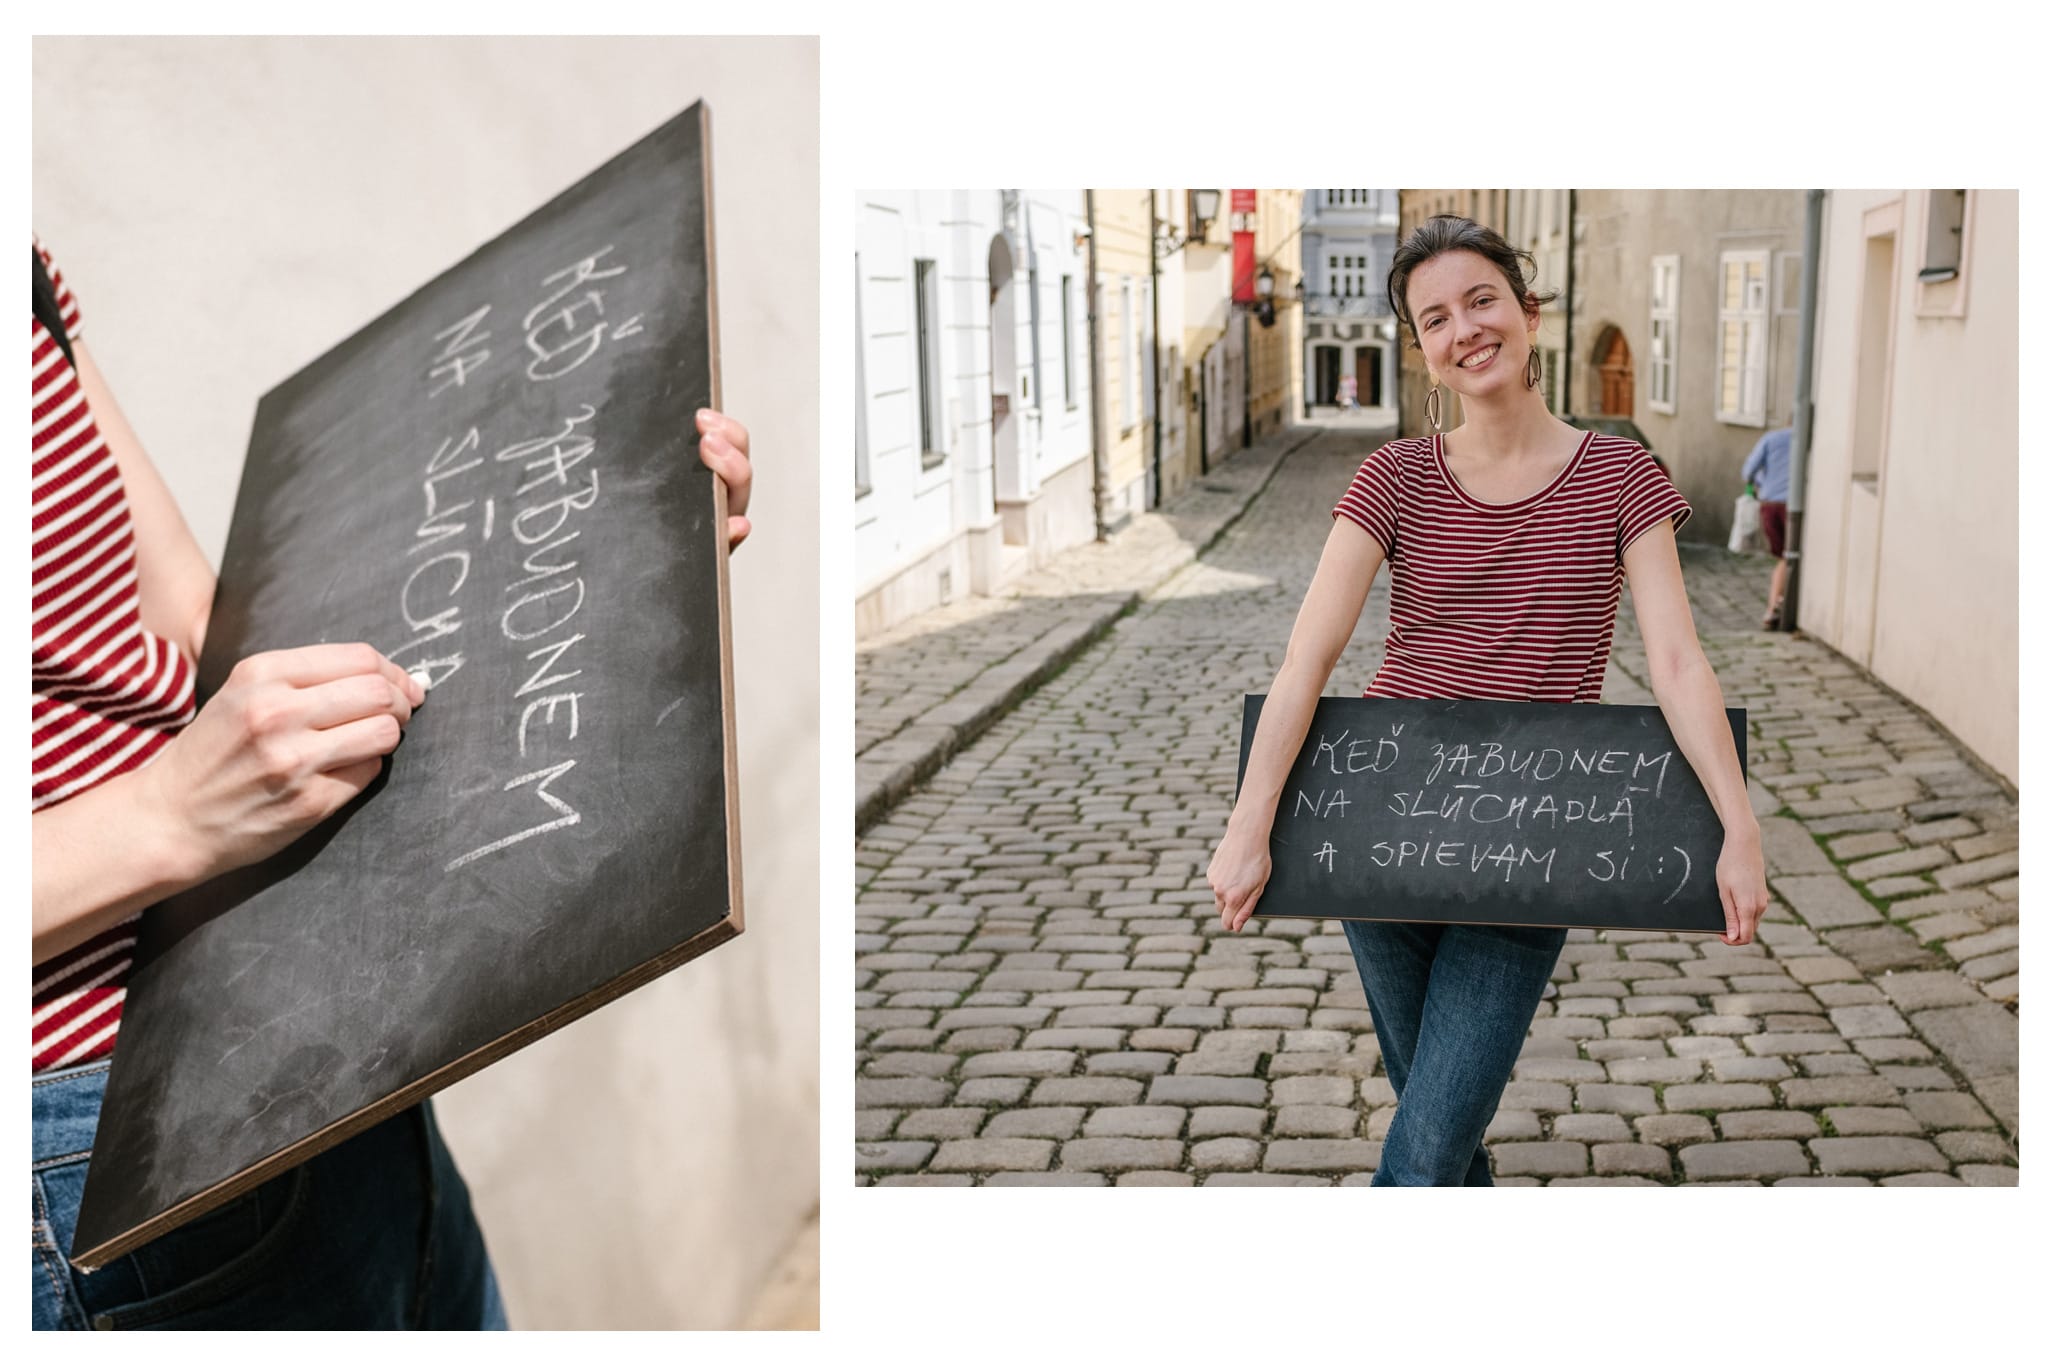 KEĎ ZABUDNEM
NA SLÚCHA
KEĎ ZABUDNEM
NA SLÚCHADLÁ
A SPIEVAM SI :)